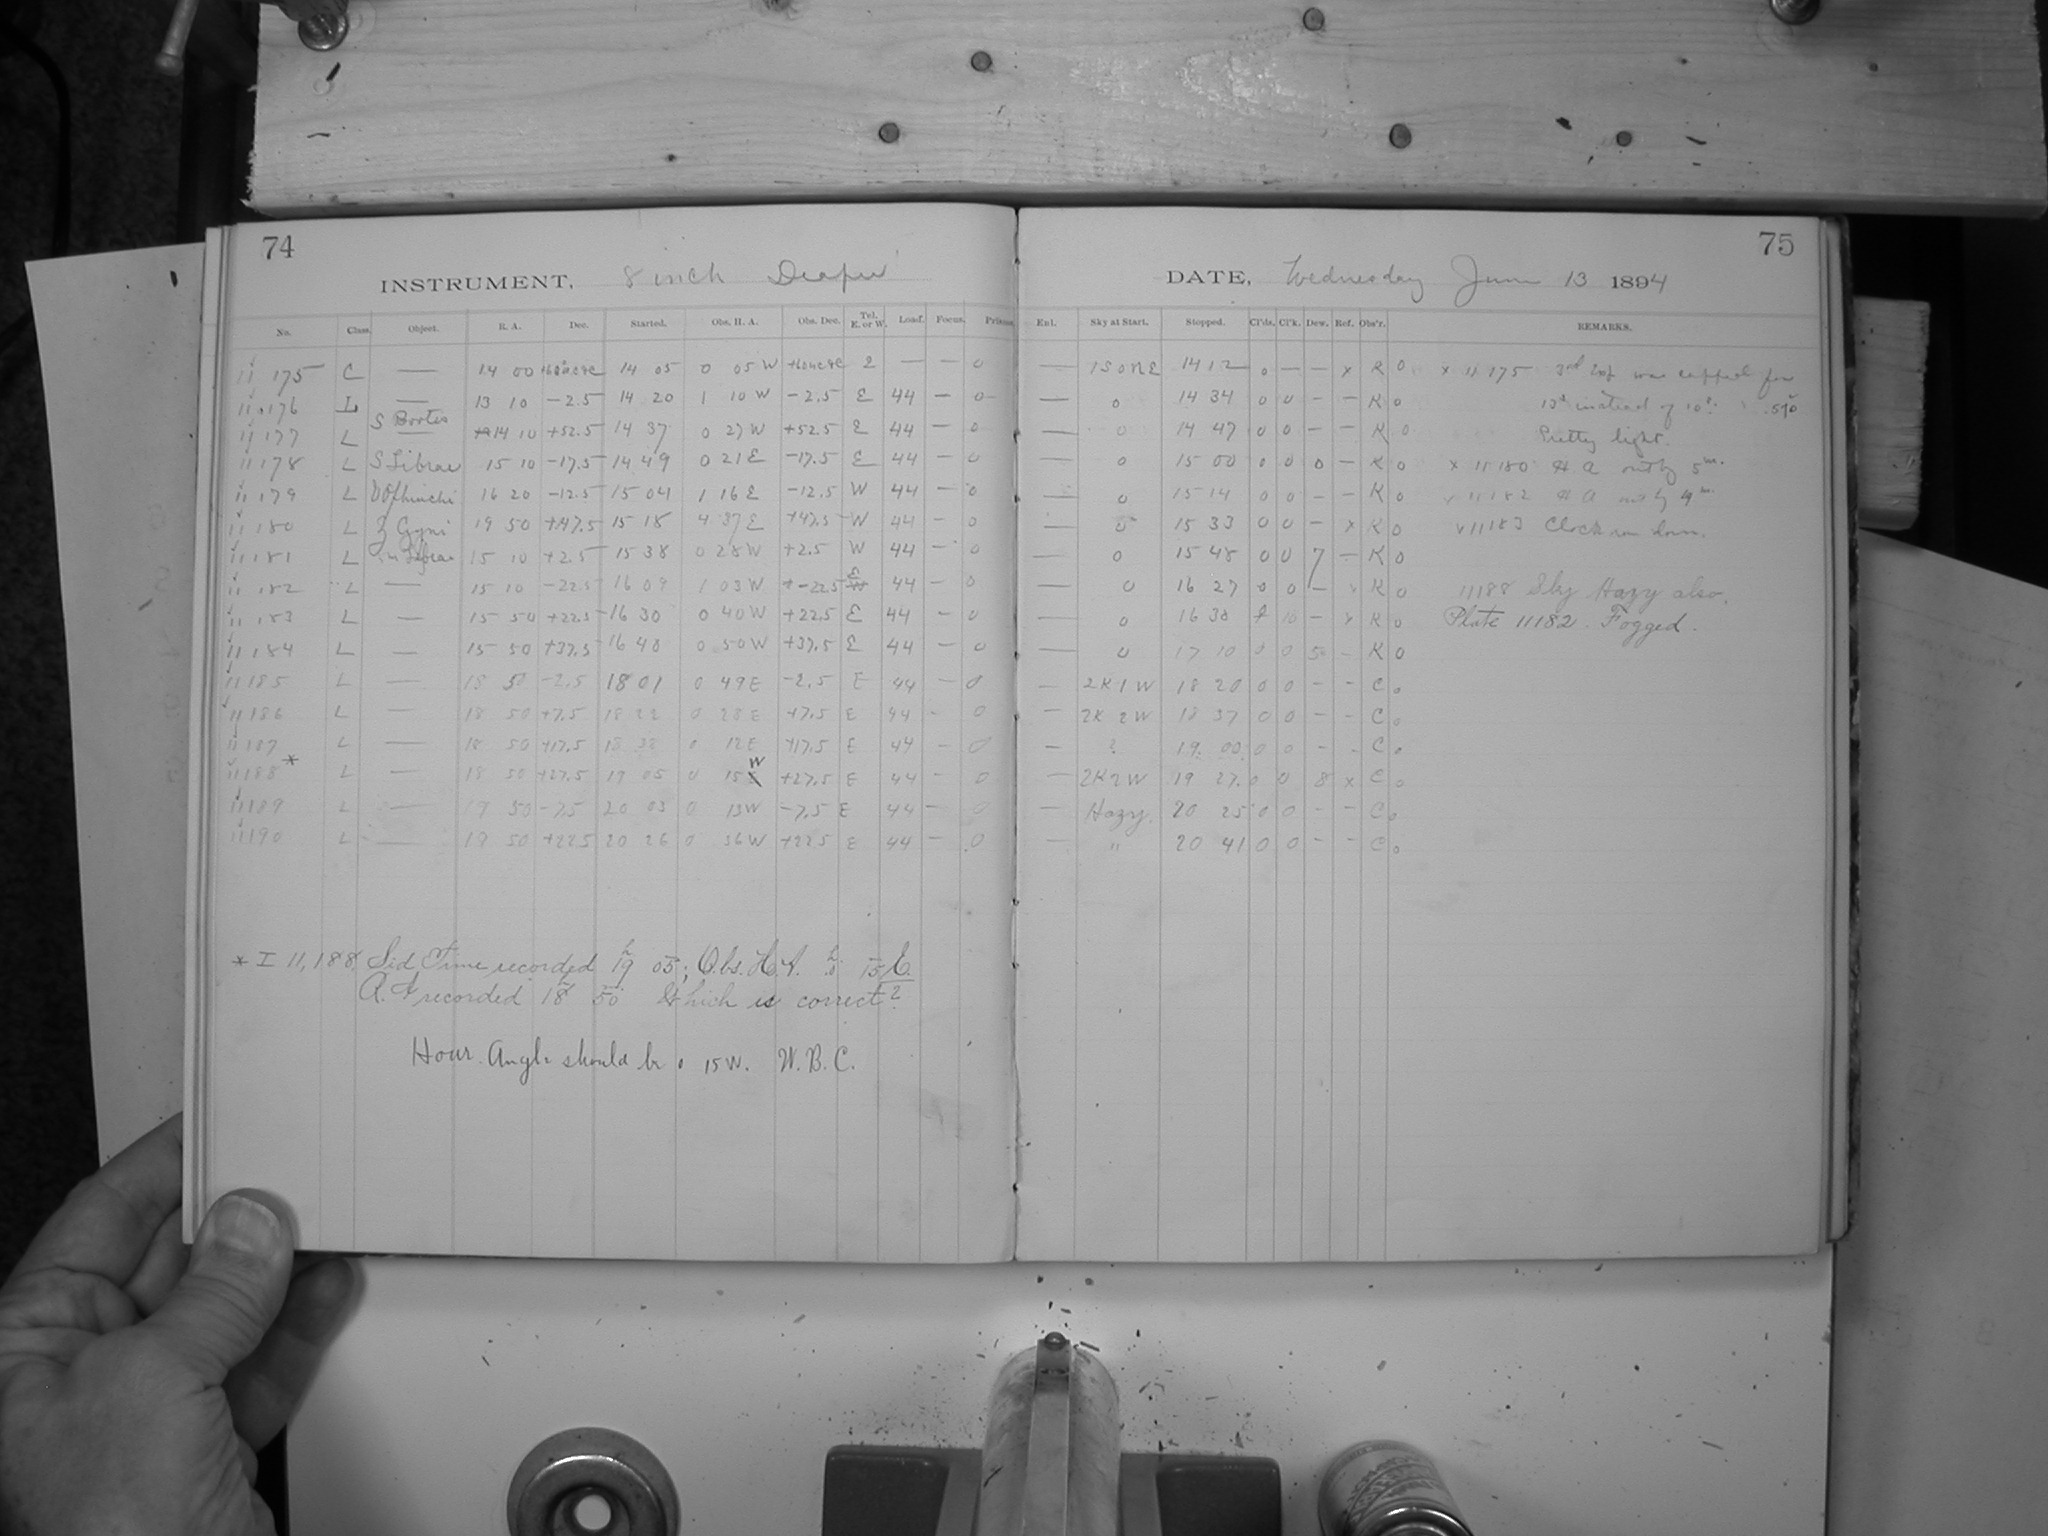 74
INSTRUMENT, 8 inch Draper
No. Class. Object. R. A. Dec. Started. Obs. H. A. Obs. Dec. Tel. E. or W. Load. Focus. Prisms
11 175 C — 14 00 14 05 0 05 W — — 0
11 176 L — 13 10 -2.5 14 20 1 10 W -2.5 E 44 — 0
11 177 L S Bootis 14 10 +52.5 14 37 0 27 W +52.5 E 44 — 0
11 178 L S Librae 15 10 -17.5 14 49 0 21 E -17.5 E 44 — 0
11 179 L 16 20 -12.5 15 04 1 16 E -12.5 W 44 — 0
11 180 L Z Cygni 19 50 +47.5 15 18 4 37 E +47.5 W 44 — 0
11 181 L Librae 15 10 +2.5 15 38 0 28 W +2.5 W 44 — 0
11 182 L — 15 10 -22.5 16 09 1 03 W -22.5 E 44 — 0
11 183 L — 15 50 +22.5 16 30 0 40 W +22.5 E 44 — 0
11 184 L — 15 50 +37.5 16 40 0 50 W +37.5 E 44 — 0
11 185 L — 18 50 -2.5 18 01 0 49 E -2.5 E 44 — 0
11 186 L — 18 50 +7.5 18 22 0 28 E +7.5 E 44 - 0
11 187 L — 18 50 +17.5 18 38 0 12 E +17.5 E 44 — 0
11188* L — 18 50 +27.5 19 05 0 15 W +27.5 E 44 — 0
11189 L — 19 50 -7.5 20 03 0 13 W -7.5 E 44 — 0
11190 L — 19 50 +22.5 20 26 0 36 W +22.5 E 44 — 0
* I 11,188 Sid Time recorded 19h 05; Obs. H. A. 0h 15 E.
R. A recorded 18h 50 Which is correct?
Hour Angle should be 0 15 W. W. B. C.
75
DATE, Wednesday June 13 1894
Enl. Sky at Start. Stopped. Cl'ds. Cl'k. Dew. Ref. Obs'r. REMARKS.
— 14 12 0 — — x K 0 x 11175 3rd was capped for
— 0 14 34 0 0 - - K 0 instead of 10s.
— 0 14 47 0 0 - - K 0 Pretty light.
— 0 15 00 0 0 0 - K 0 x 11180 H A only 5m.
— 0 15 14 0 0 - - K 0 11182 H A only 4m.
— 0 15 33 0 0 - x K 0 11183 Clock run down.
— 0 15 48 0 0 7 - K 0
— 0 16 27 0 0 - K 0 11188 Sky Hazy also.
— 0 16 38 10 - x K 0 Plate 11182. Fogged.
— 0 17 10 0 0 50 - K 0
— 2K1W 18 20 0 0 - - C 0
— 2K 2W 18 37 0 0 - - C 0
— ? 19 00 0 0 - - C 0
— 2K2W 19 27 0 0 8 x C 0
— Hazy. 20 25 0 0 - - C 0
— " 20 41 0 0 - - C 0